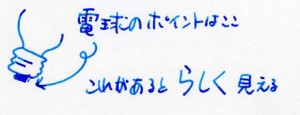 電球のポイントはここ
これがあると らしく 見える